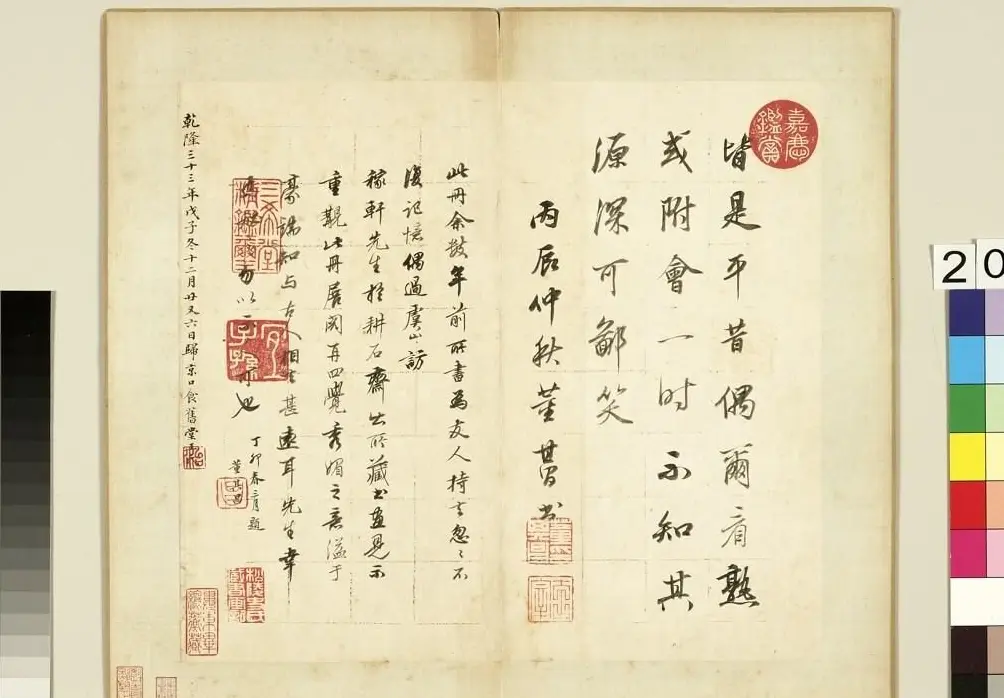 皆是平昔偶爾看熟
或附會一時不知其
源深可鄙笑
丙辰仲秋董其昌書
嘉慶鑑賞
此冊余數年前所書為友人持去忽忽不
復記憶偶過虞山訪
稼軒先生於耕石齋出所藏書畫見示
重觀此冊展閱再四覺秀媚之意溢于
豪端知与古人相去甚遠耳先生幸
有以 可也
丁卯春二月題
董其昌
三希堂精鑑璽
宜子孫
乾隆三十三年戊子冬十二月廿又六日歸京口食舊堂
20